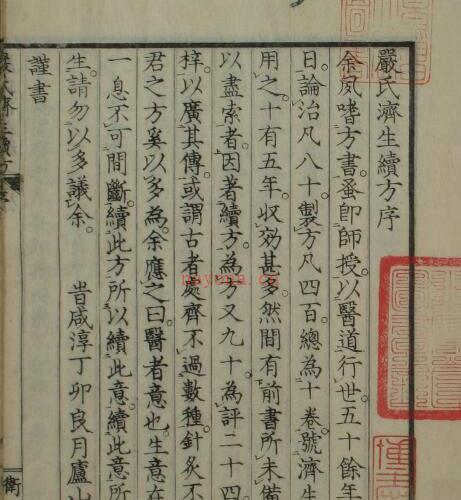 嚴氏濟生續方序
余夙嗜方書蚤卽師授以醫道行世五十餘年
日論治凡八十製方凡四百總為十卷號濟生
用之十有五年收効甚多然間有前書所未備
以盡索者因著續方為方又九十為評二十四
梓以廣其傳或謂古者處齊不過數種針灸不
君之方奚以多為余應之曰醫者意也生意在
一息不可間斷續此方所以續此意續此意所
生請勿以多議余
旹咸淳丁卯良月廬山
謹書
衛